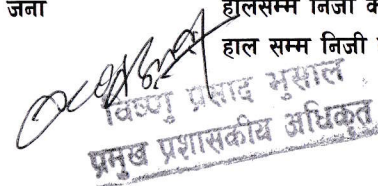 जना
हालसम्म निजी क
हाल सम्म निजी
विष्णु प्रसाद भुसाल
प्रमुख प्रशासकीय अधिकृत